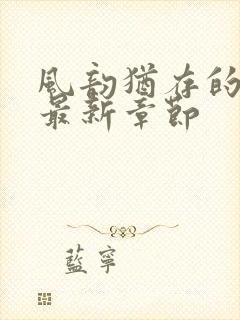 風韵猶存的
最新章節
藍寧